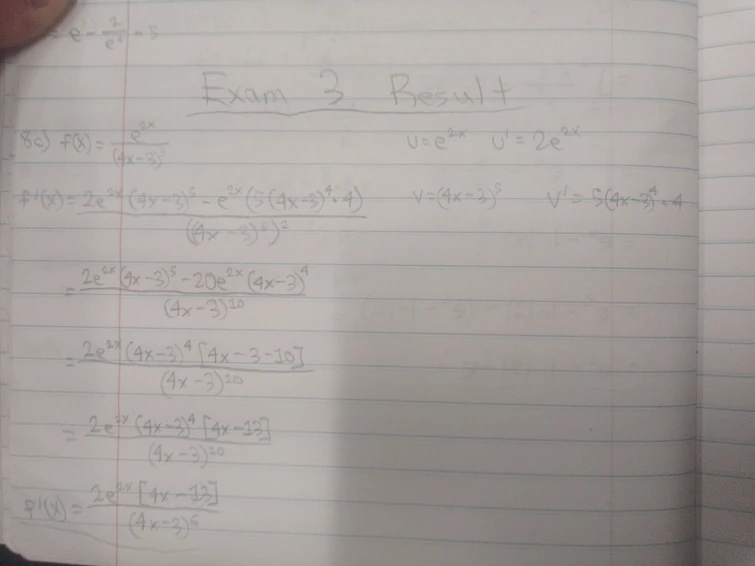 = e - 1/e⁴ - 5
Exam 3 Result
8c) f(x) = e^{2x}/(4x-3)^5 u=e^{2x} u' = 2e^{2x}
f'(x) = 2e^{2x}(4x-3)^5 - e^{2x}(5(4x-3)^4 · 4)/((4x-3)^5)^2 v=(4x-3)^5 v' = 5(4x-3)^4 · 4
= 2e^{2x}(4x-3)^5 - 20e^{2x}(4x-3)^4/(4x-3)^{10}
= 2e^{2x}(4x-3)^4[4x-3-10]/(4x-3)^{10}
= 2e^{2x}(4x-3)^4[4x-13]/(4x-3)^{10}
f'(x) = 2e^{2x}[4x-13]/(4x-3)^6